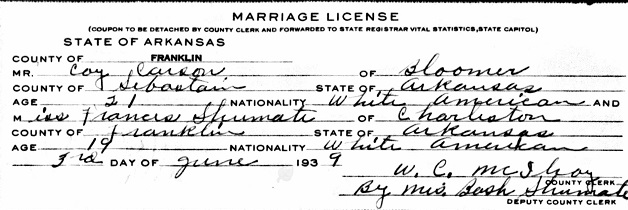 MARRIAGE LICENSE
(COUPON TO BE DETACHED BY COUNTY CLERK AND FORWARDED TO STATE REGISTRAR VITAL STATISTICS, STATE CAPITOL)
STATE OF ARKANSAS
COUNTY OF FRANKLIN
MR. Coy Carson OF Bloomer
COUNTY OF Sebastain STATE OF Arkansas
AGE 21 NATIONALITY White American AND
Miss Francis Shumate OF Charleston
COUNTY OF Franklin STATE OF Arkansas
AGE 19 NATIONALITY White American
3rd DAY OF June 1939
W. C. McIlroy
COUNTY CLERK
By Mrs. Bash Shumate
DEPUTY COUNTY CLERK